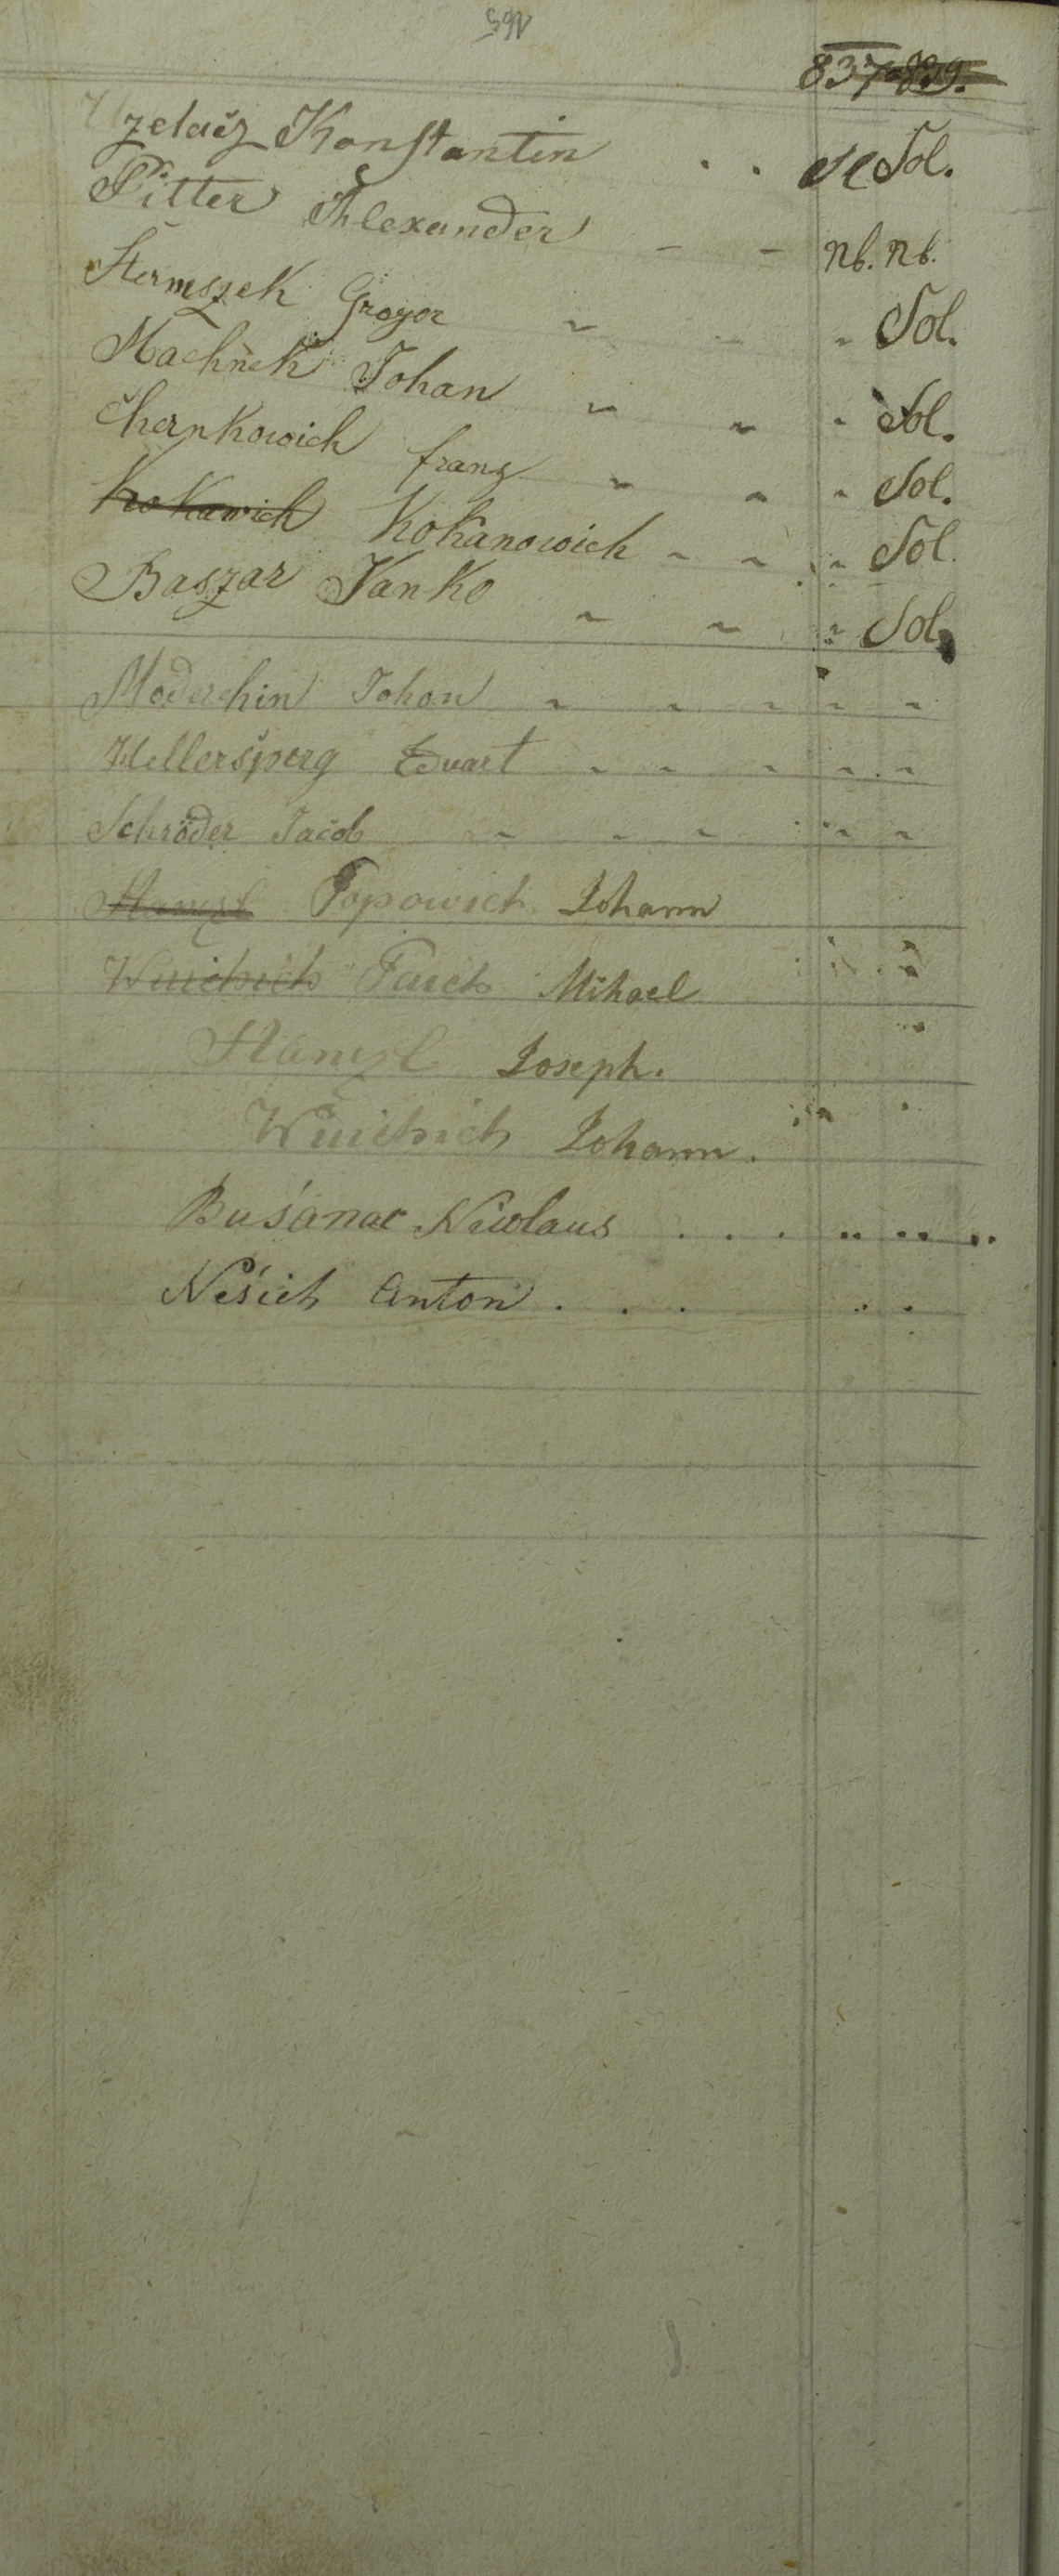 165
837-839.
Uzelaiz Konstantin . . Sol.
Pitter Alexander - - Nb. Nb.
Stermszek Gregor " " Sol.
Machnek Johan " " " Sol.
Chernkowich franz " " " Sol.
Kokawich Kokanowich " " " Sol.
Baszar Janko " " " Sol.
Moderchin Johan " " " " "
Hellersperg Eduart " " " " "
Schröder Jacob " " " " "
Hanczl Popowich Johann
Wuichich Paich Mihael
Hanczl Joseph.
Wuichich Johann.
Bušanac Nicolaus . . . .. .. ..
Nešich Anton . . . .. .